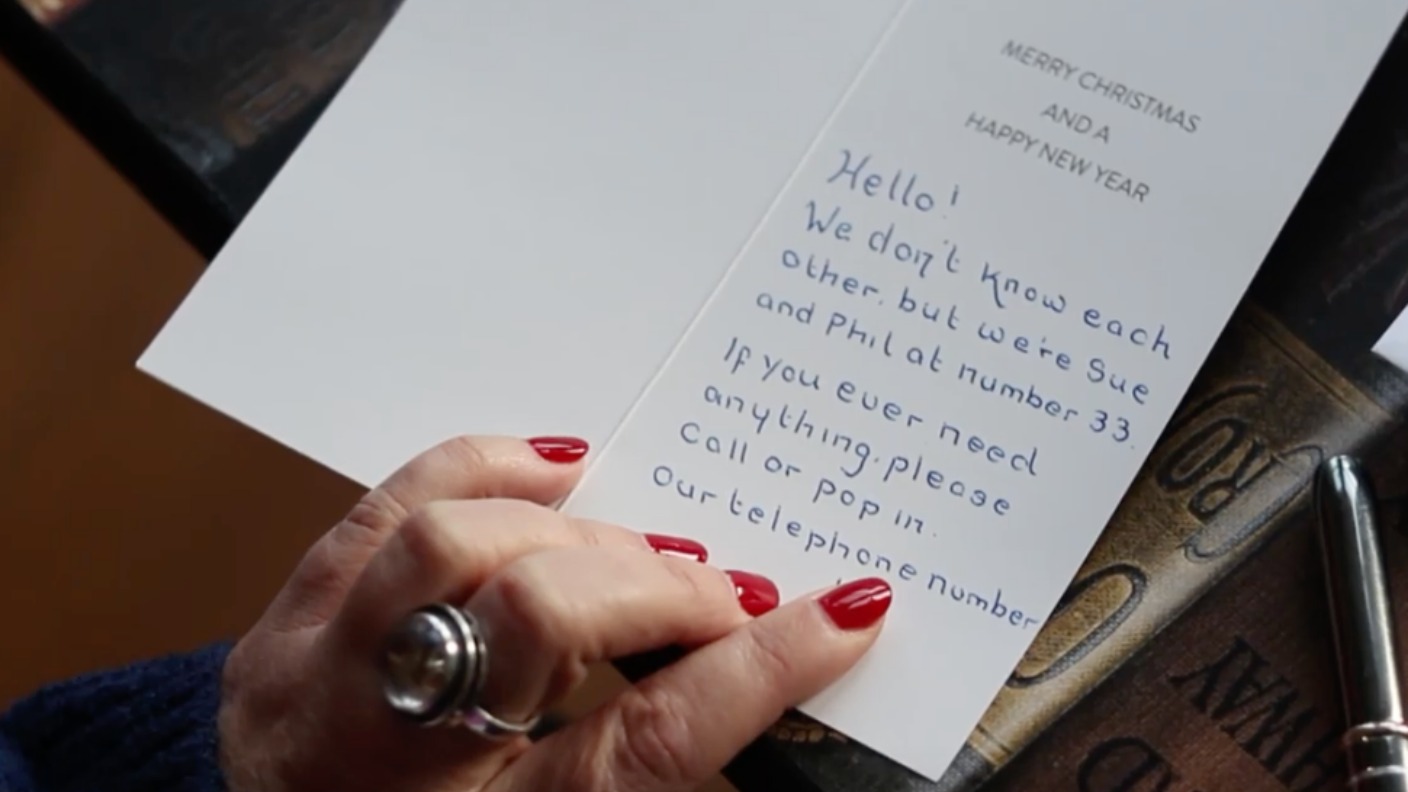 MERRY CHRISTMAS
AND A
HAPPY NEW YEAR
Hello!
We don't know each
other. but we're Sue
and Phil at number 33.
If you ever need
anything. please
Call or pop in.
Our telephone number
CRO
WAY